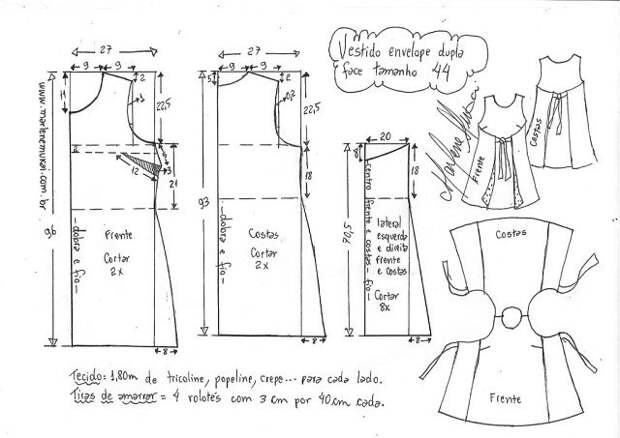 Vestido envelope dupla
face tamanho 44
27
9
9
2
3
11
22,5
12
3
21
96
Frente
Cortar
2x
dobra e fio
8
www.marlenemukai.com.br
27
9
9
5
2
22,5
18
93
Costas
Cortar
2x
dobra e fio
8
20
18
70,5
centro frente e costas - fio
lateral
esquerda
e direita
frente
e costas
Cortar
8x
8
Marlene Mukai
Frente
Costas
Costas
Frente
Tecido = 1,80m de tricoline, popeline, crepe... para cada lado.
Tiras de amarrar = 4 rolotês com 3 cm por 40 cm cada.